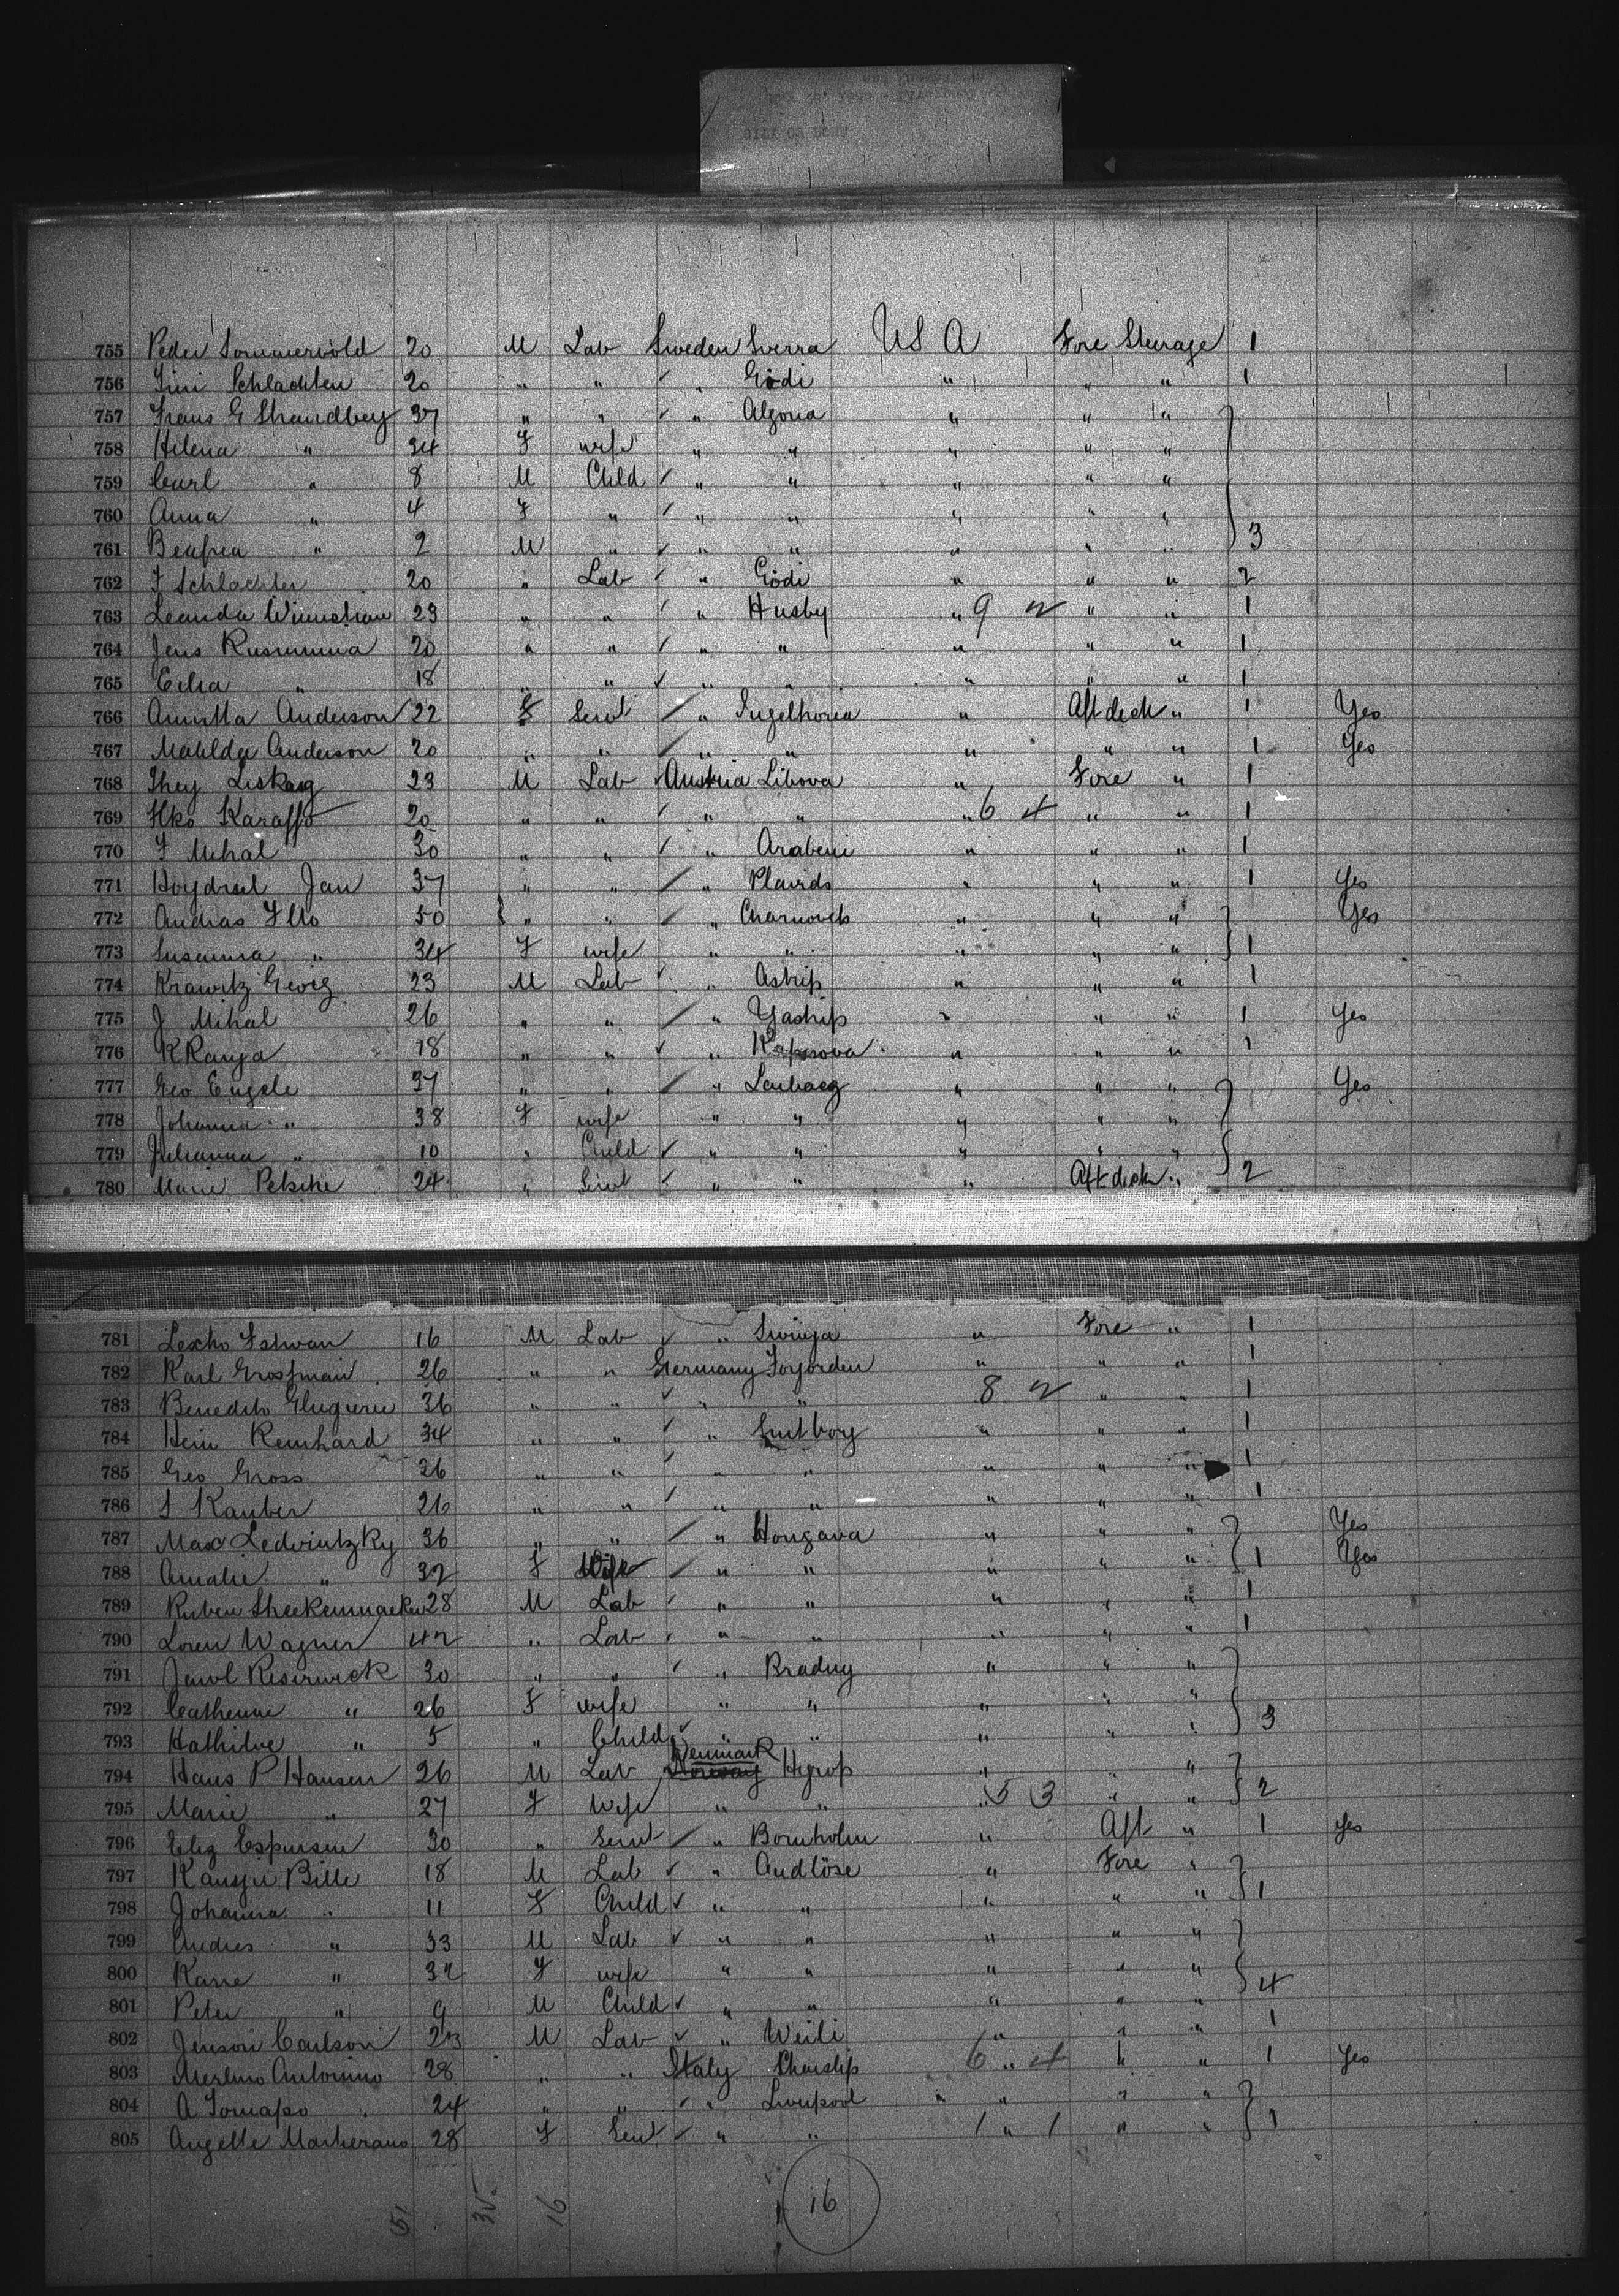 755 Peder Sommervold 20 M Lab Sweden Sverra US A Fore Steerage 1
756 Jini Schlachten 20 " " " Gödi " " " 1
757 Frans G Strandberg 37 " " " Algona " " "
758 Helena " 34 F wife " " " " "
759 Carl " 8 M Child " " " " "
760 Anna " 4 F " " " " " "
761 " 2 M " " " " " " 3
762 J Schlachter 20 " Lab " Gödi " " " 2
763 Leander 23 " " " Husby " 9 2 " " 1
764 Jens Rusumma 20 " " " " " " " 1
765 " 18 " " " " " " " 1
766 Anderson 22 F Servt " Ingelhorea " Aft deck " 1 Yes
767 Matilda Anderson 20 " " " " " " " 1 Yes
768 23 M Lab Austria Libova " Fore " 1
769 Ilko Karaffo 20 " " " " " 6 4 " " 1
770 J Mihal 30 " " " Arabeni " " " 1
771 Hoydrsel Jan 37 " " " Plavids " " " 1 Yes
772 Andras Illo 50 " " " Charnovels " " " Yes
773 Susanna " 34 F wife " " " " " 1
774 Krawitz Georg 23 M Lab " Astrip " " " 1
775 J Mihal 26 " " " Yastrip " " " 1 Yes
776 K Ranya 18 " " " Kapsova " " " 1
777 Geo Engele 37 " " " " " " Yes
778 Johanna " 38 F wife " " " " "
779 Julianna " 10 " Child " " " " "
780 Marie Petsche 24 " Servt " " " Aft deck " 2
781 Lesko Istwan 16 M Lab " Swinja " Fore " 1
782 Karl Grossman 26 " " Germany Foyorden " " " 1
783 Benedito 36 " " " " 8 2 " " 1
784 Hein Reinhard 34 " " " " " " 1
785 Geo Gross 26 " " " " " " " 1
786 S Kauber 26 " " " " " " " 1
787 Max Ledvintzky 36 " " " Hongava " " " Yes
788 Amalie " 32 F Wife " " " " " 1 Yes
789 Ruben 28 M Lab " " " " " 1
790 Loren Wagner 42 " Lab " " " " " 1
791 30 " " " Braduy " " "
792 Catherine " 26 F wife " " " " "
793 Hathilve " 5 " Child " " " " " 3
794 Hans P Hansen 26 M Lab Norway Denmark Hyrop " " "
795 Marie " 27 F Wife " " " 5 3 " " 2
796 Eliz Espersen 30 " Servt " Bornholm " Aft " 1 Yes
797 Bille 18 M Lab " Audlöse " Fore "
798 Johanna " 11 F Child " " " " " 1
799 Andres " 33 M Lab " " " " "
800 Karre " 32 F wife " " " " "
801 Peter " 9 M Child " " " " " 4
802 Jenson Carlson 23 M Lab " Weili " " " 1
803 Merlino Antonino 28 " " Italy 6 " 4 " " 1 Yes
804 A Tomaso 24 " " " Liverpool " " " "
805 Angelle Marherano 28 F Servt " " 1 " 1 " " 1
51 35 16 16